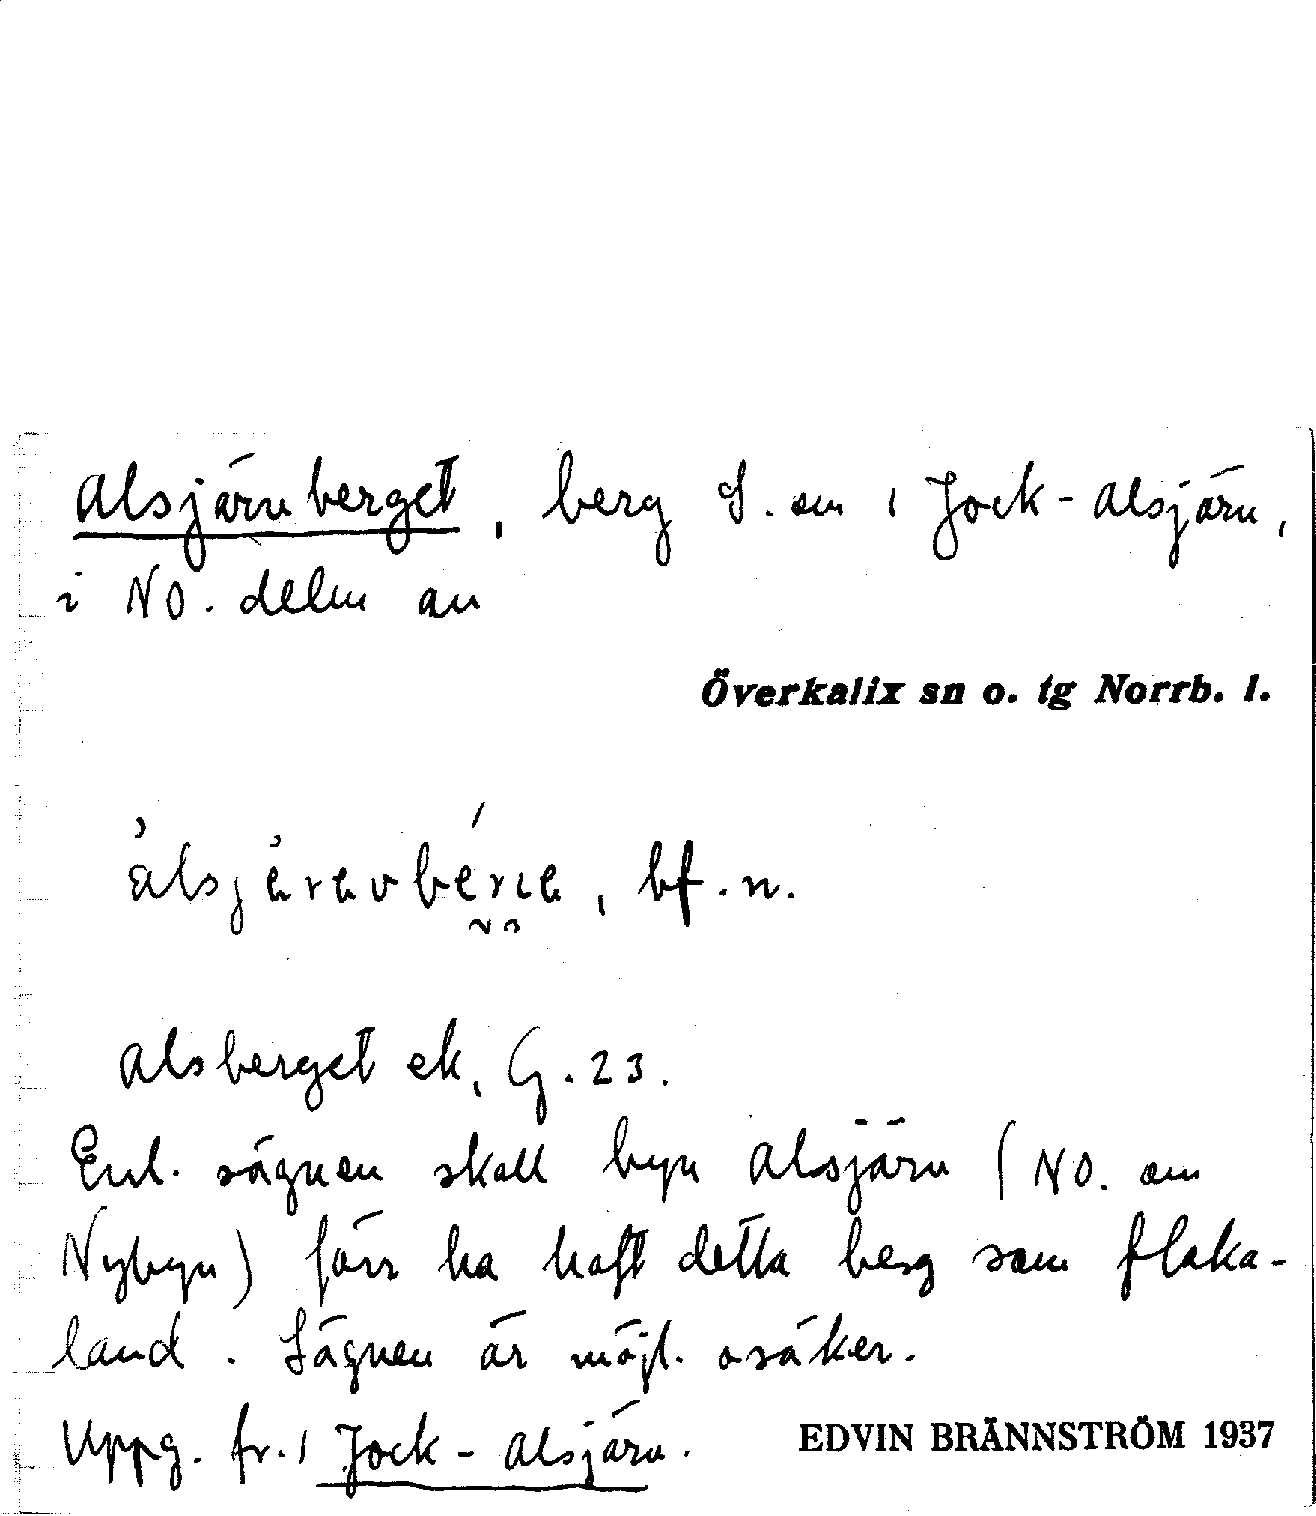 Alsjärnberget, berg S. om / Jock-Alsjärn,
i NO. delen av
Överkalix sn o. tg Norrb. l.
bf. n.
Alsberget ek, G. 23.
Enl. sägnen skall byn Alsjärn (NO. om
Nybyn) förr ha haft detta berg som flaka-
land. Sägnen är möjl. osäker.
Uppg. fr. / Jock-Alsjärn.
EDVIN BRÄNNSTRÖM 1937